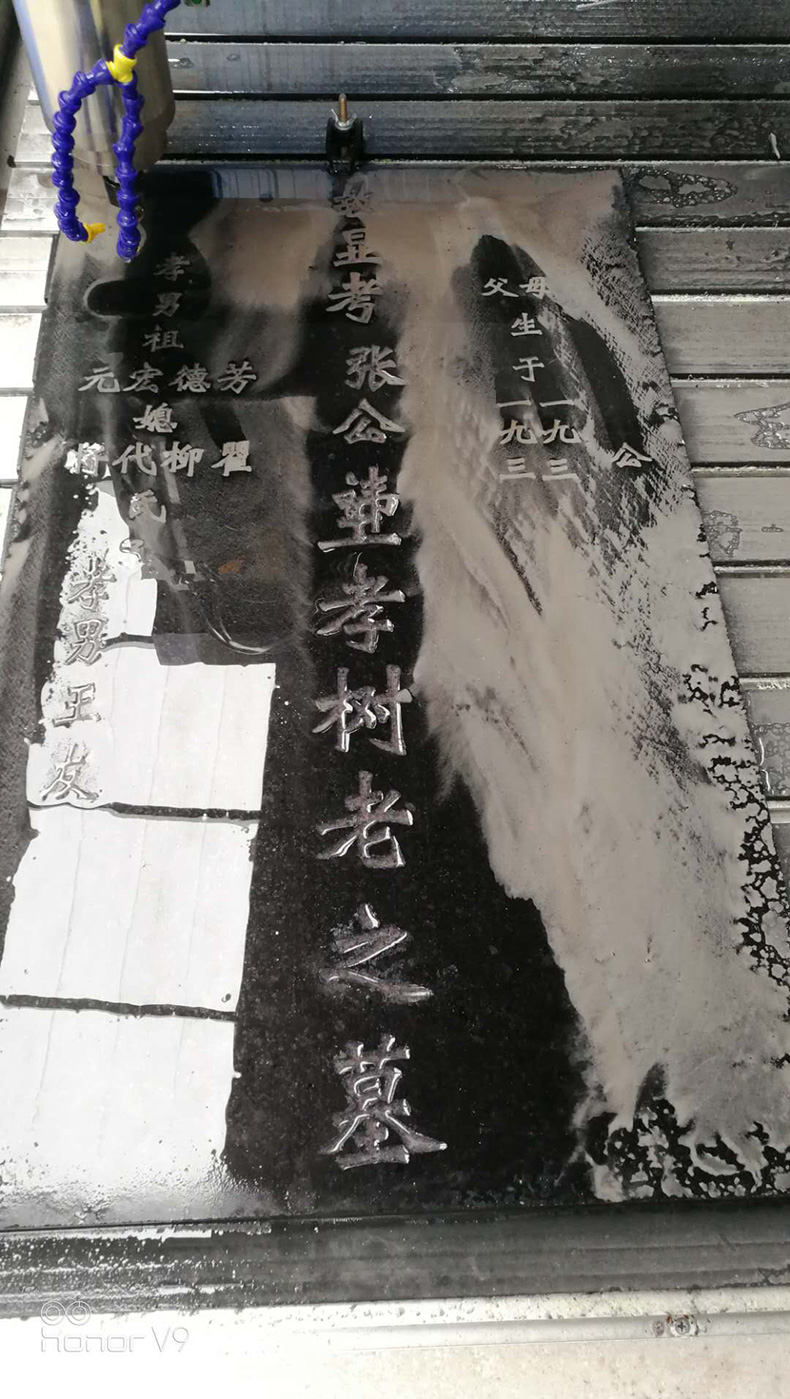 公
父母
生于
一九三
一九三
显考张公孝树老之墓
孝男祖
元宏德芳
媳
代柳瞿
氏
孝男王友
honor V9